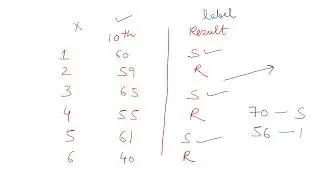 x ✓ label
10th Result
1 60 S ✓
2 59 R
3 65 S ✓
4 55 R 70 — S
5 61 S ✓ 56 —
6 40 R